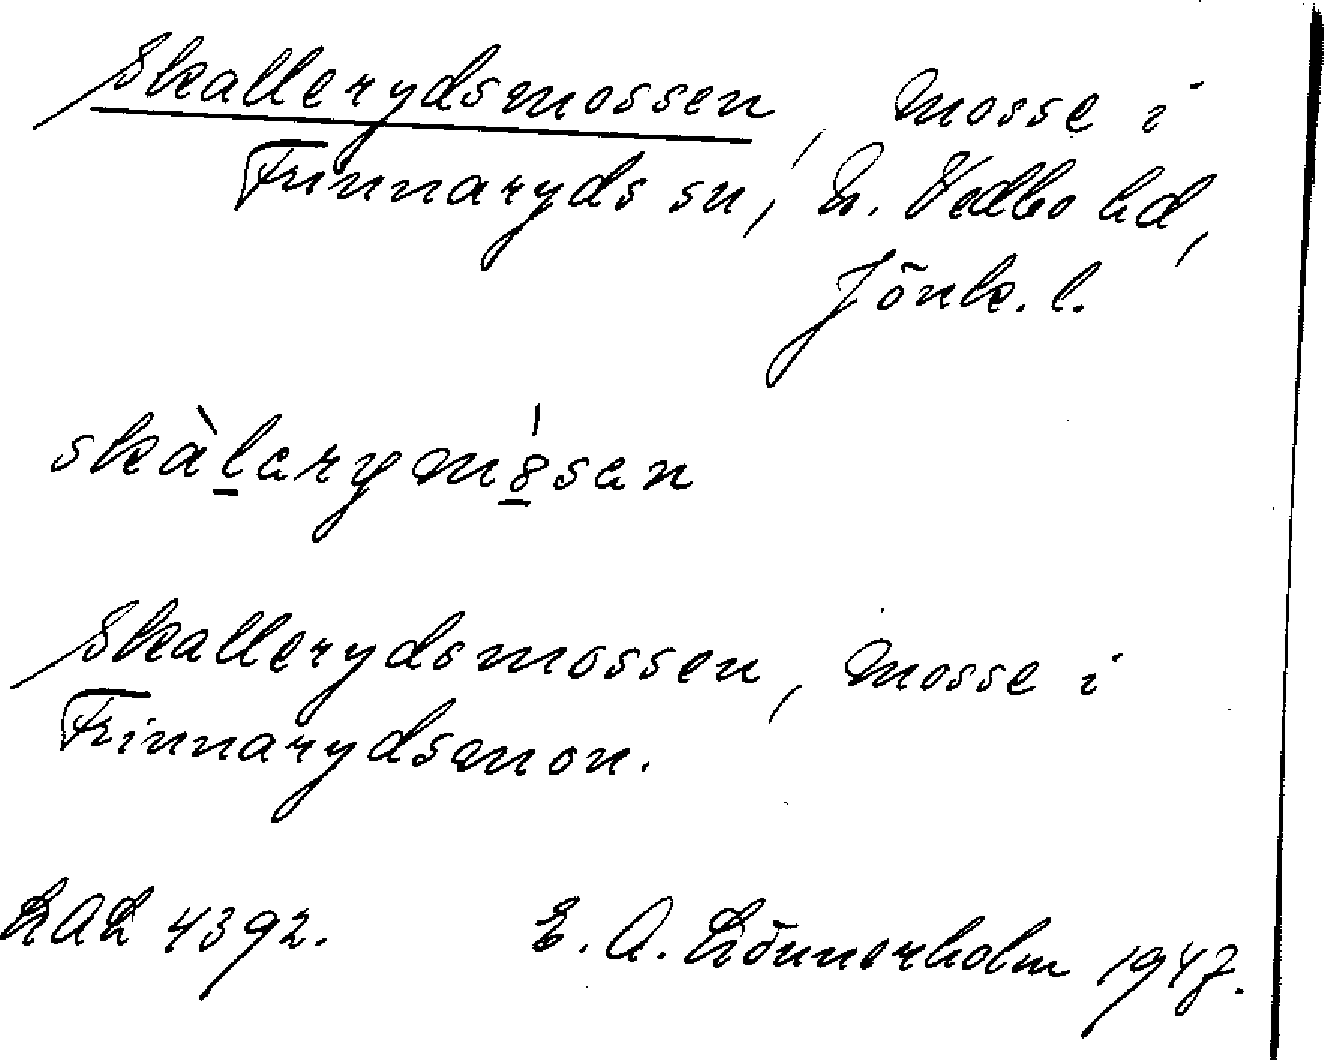 Skallerydsmossen, mosse i
Finnaryds sn, N. Vedbo hd,
Jönk. l.
skàlarymósan
Skallerydsmossen, mosse i
Finnarydsmon.
LAL 4392. E. A. Lönnerholm 1947.